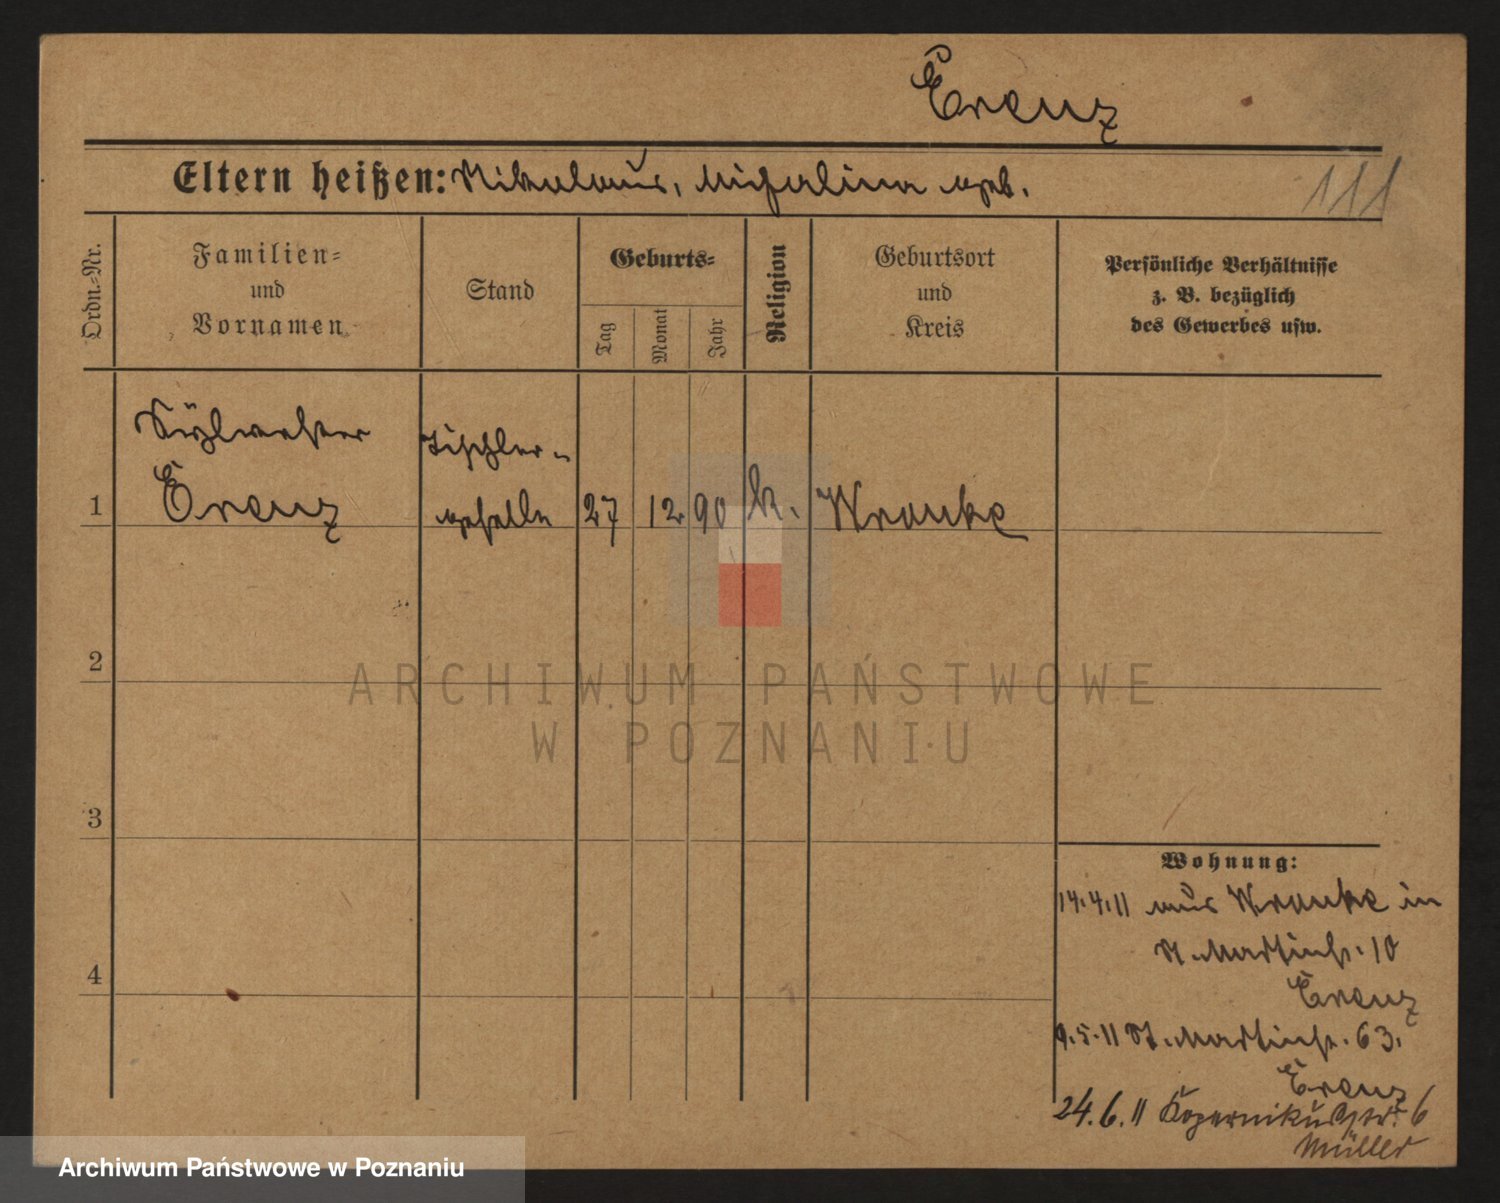 Erenz
Eltern heißen: Nikolaus, Michalina geb.
111
Ordn.-Nr.
Familien-
und
Vornamen
Stand
Geburts-
Tag
Monat
Jahr
Religion
Geburtsort
und
Kreis
Persönliche Verhältnisse
z. B. bezüglich
des Gewerbes usw.
Sylvester
Tischler-
1 Erenz geselle 27 12 90 k. Wronke
2
ARCHIWUM PAŃSTWOWE
W POZNANIU
3
4
Wohnung:
14.4.11 aus Wronke in
St. Martinstr. 10
Erenz
9.5.11 St. Martinstr. 63.
Erenz
24.6.11 Kopernikusstr. 6
Müller
Archiwum Państwowe w Poznaniu